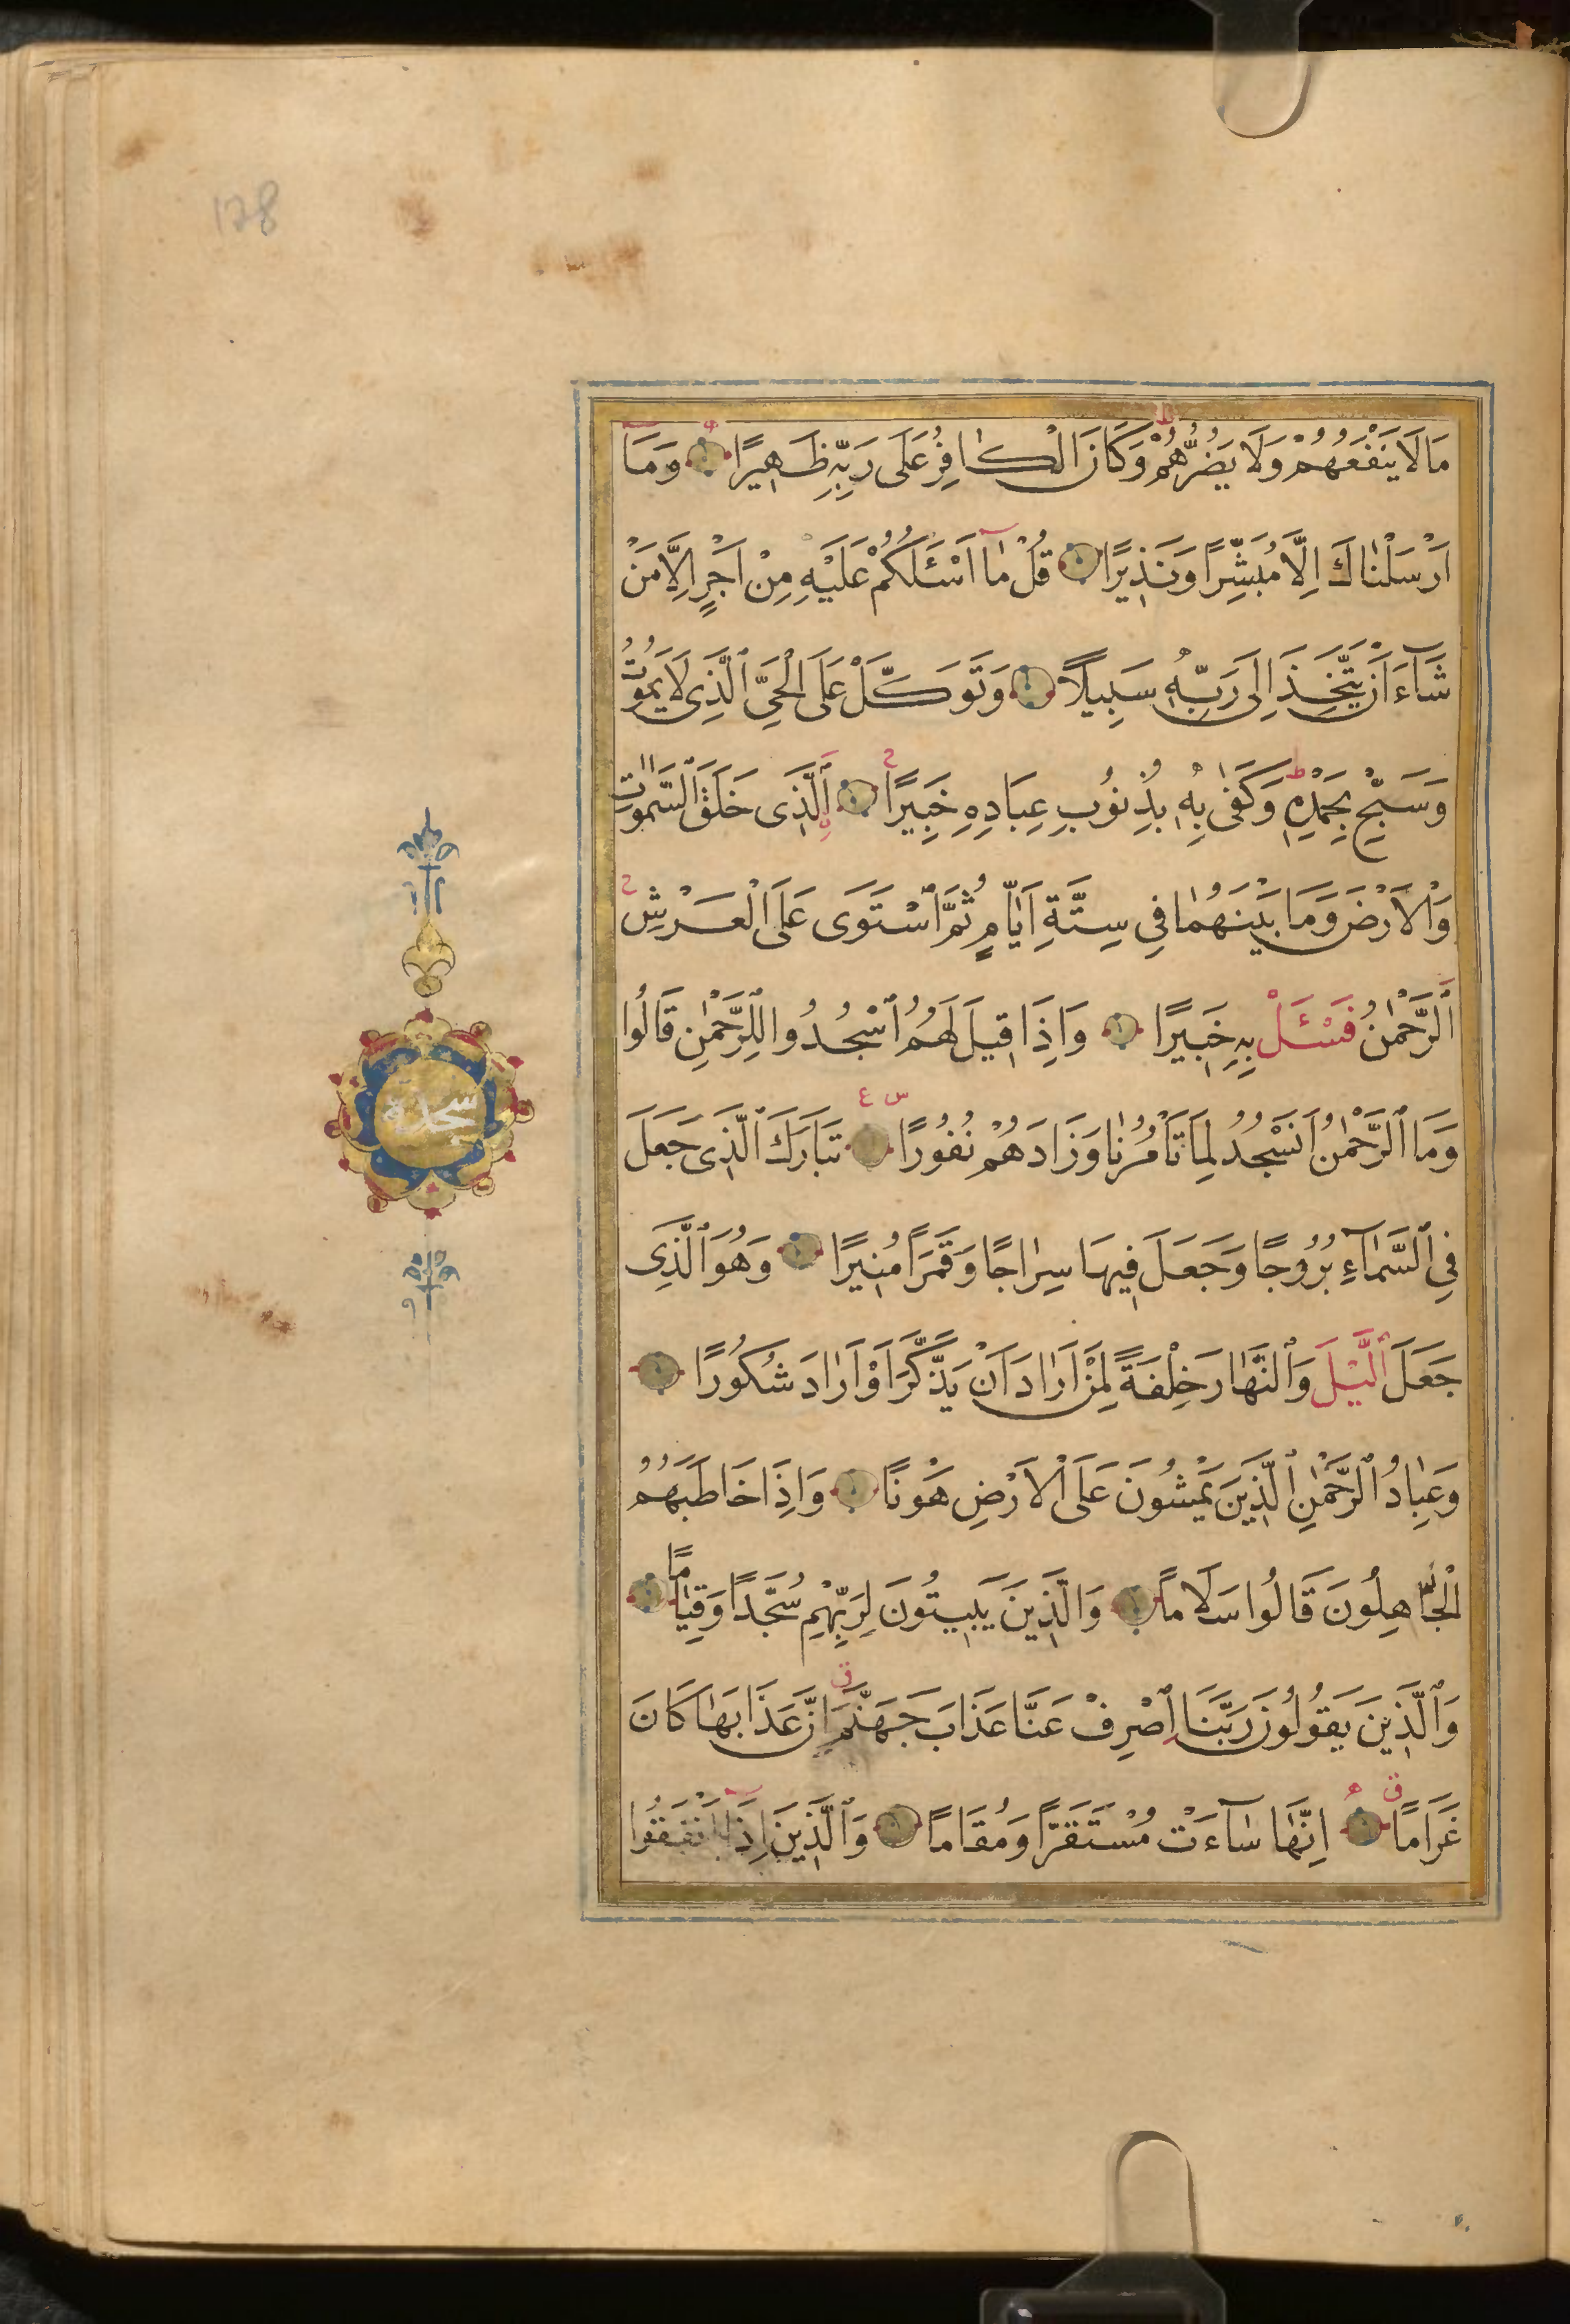 178
مَا لَا يَنْفَعُهُمْ وَلَا يَضُرُّهُمْ وَكَانَ الْكَافِرُ عَلَى رَبِّهِ ظَهِيرًا وَمَا
اَرْسَلْنَاكَ اِلَّا مُبَشِّرًا وَنَذِيرًا قُلْ مَا اَسْئَلُكُمْ عَلَيْهِ مِنْ اَجْرٍ اِلَّا مَنْ
شَاءَ اَنْ يَتَّخِذَ اِلَى رَبِّهِ سَبِيلًا وَتَوَكَّلْ عَلَى الْحَيِّ الَّذِى لَا يَمُوتُ
وَسَبِّحْ بِحَمْدِهِ وَكَفَى بِهِ بِذُنُوبِ عِبَادِهِ خَبِيرًا اَلَّذِى خَلَقَ السَّمٰوَاتِ
وَالْاَرْضَ وَمَا بَيْنَهُمَا فِى سِتَّةِ اَيَّامٍ ثُمَّ اسْتَوَى عَلَى الْعَرْشِ
اَلرَّحْمٰنُ فَسْئَلْ بِهِ خَبِيرًا وَاِذَا قِيلَ لَهُمُ اسْجُدُوا لِلرَّحْمٰنِ قَالُوا
وَمَا الرَّحْمٰنُ اَنَسْجُدُ لِمَا تَاْمُرُنَا وَزَادَهُمْ نُفُورًا تَبَارَكَ الَّذِى جَعَلَ
فِى السَّمَاءِ بُرُوجًا وَجَعَلَ فِيهَا سِرَاجًا وَقَمَرًا مُنِيرًا وَهُوَ الَّذِى
جَعَلَ الَّيْلَ وَالنَّهَارَ خِلْفَةً لِمَنْ اَرَادَ اَنْ يَذَّكَّرَ اَوْ اَرَادَ شُكُورًا
وَعِبَادُ الرَّحْمٰنِ الَّذِينَ يَمْشُونَ عَلَى الْاَرْضِ هَوْنًا وَاِذَا خَاطَبَهُمُ
الْجَاهِلُونَ قَالُوا سَلَامًا وَالَّذِينَ يَبِيتُونَ لِرَبِّهِمْ سُجَّدًا وَقِيَامًا
وَالَّذِينَ يَقُولُونَ رَبَّنَا اصْرِفْ عَنَّا عَذَابَ جَهَنَّمَ اِنَّ عَذَابَهَا كَانَ
غَرَامًا اِنَّهَا سَاءَتْ مُسْتَقَرًّا وَمُقَامًا وَالَّذِينَ اِذَا اَنْفَقُوا
سجدة